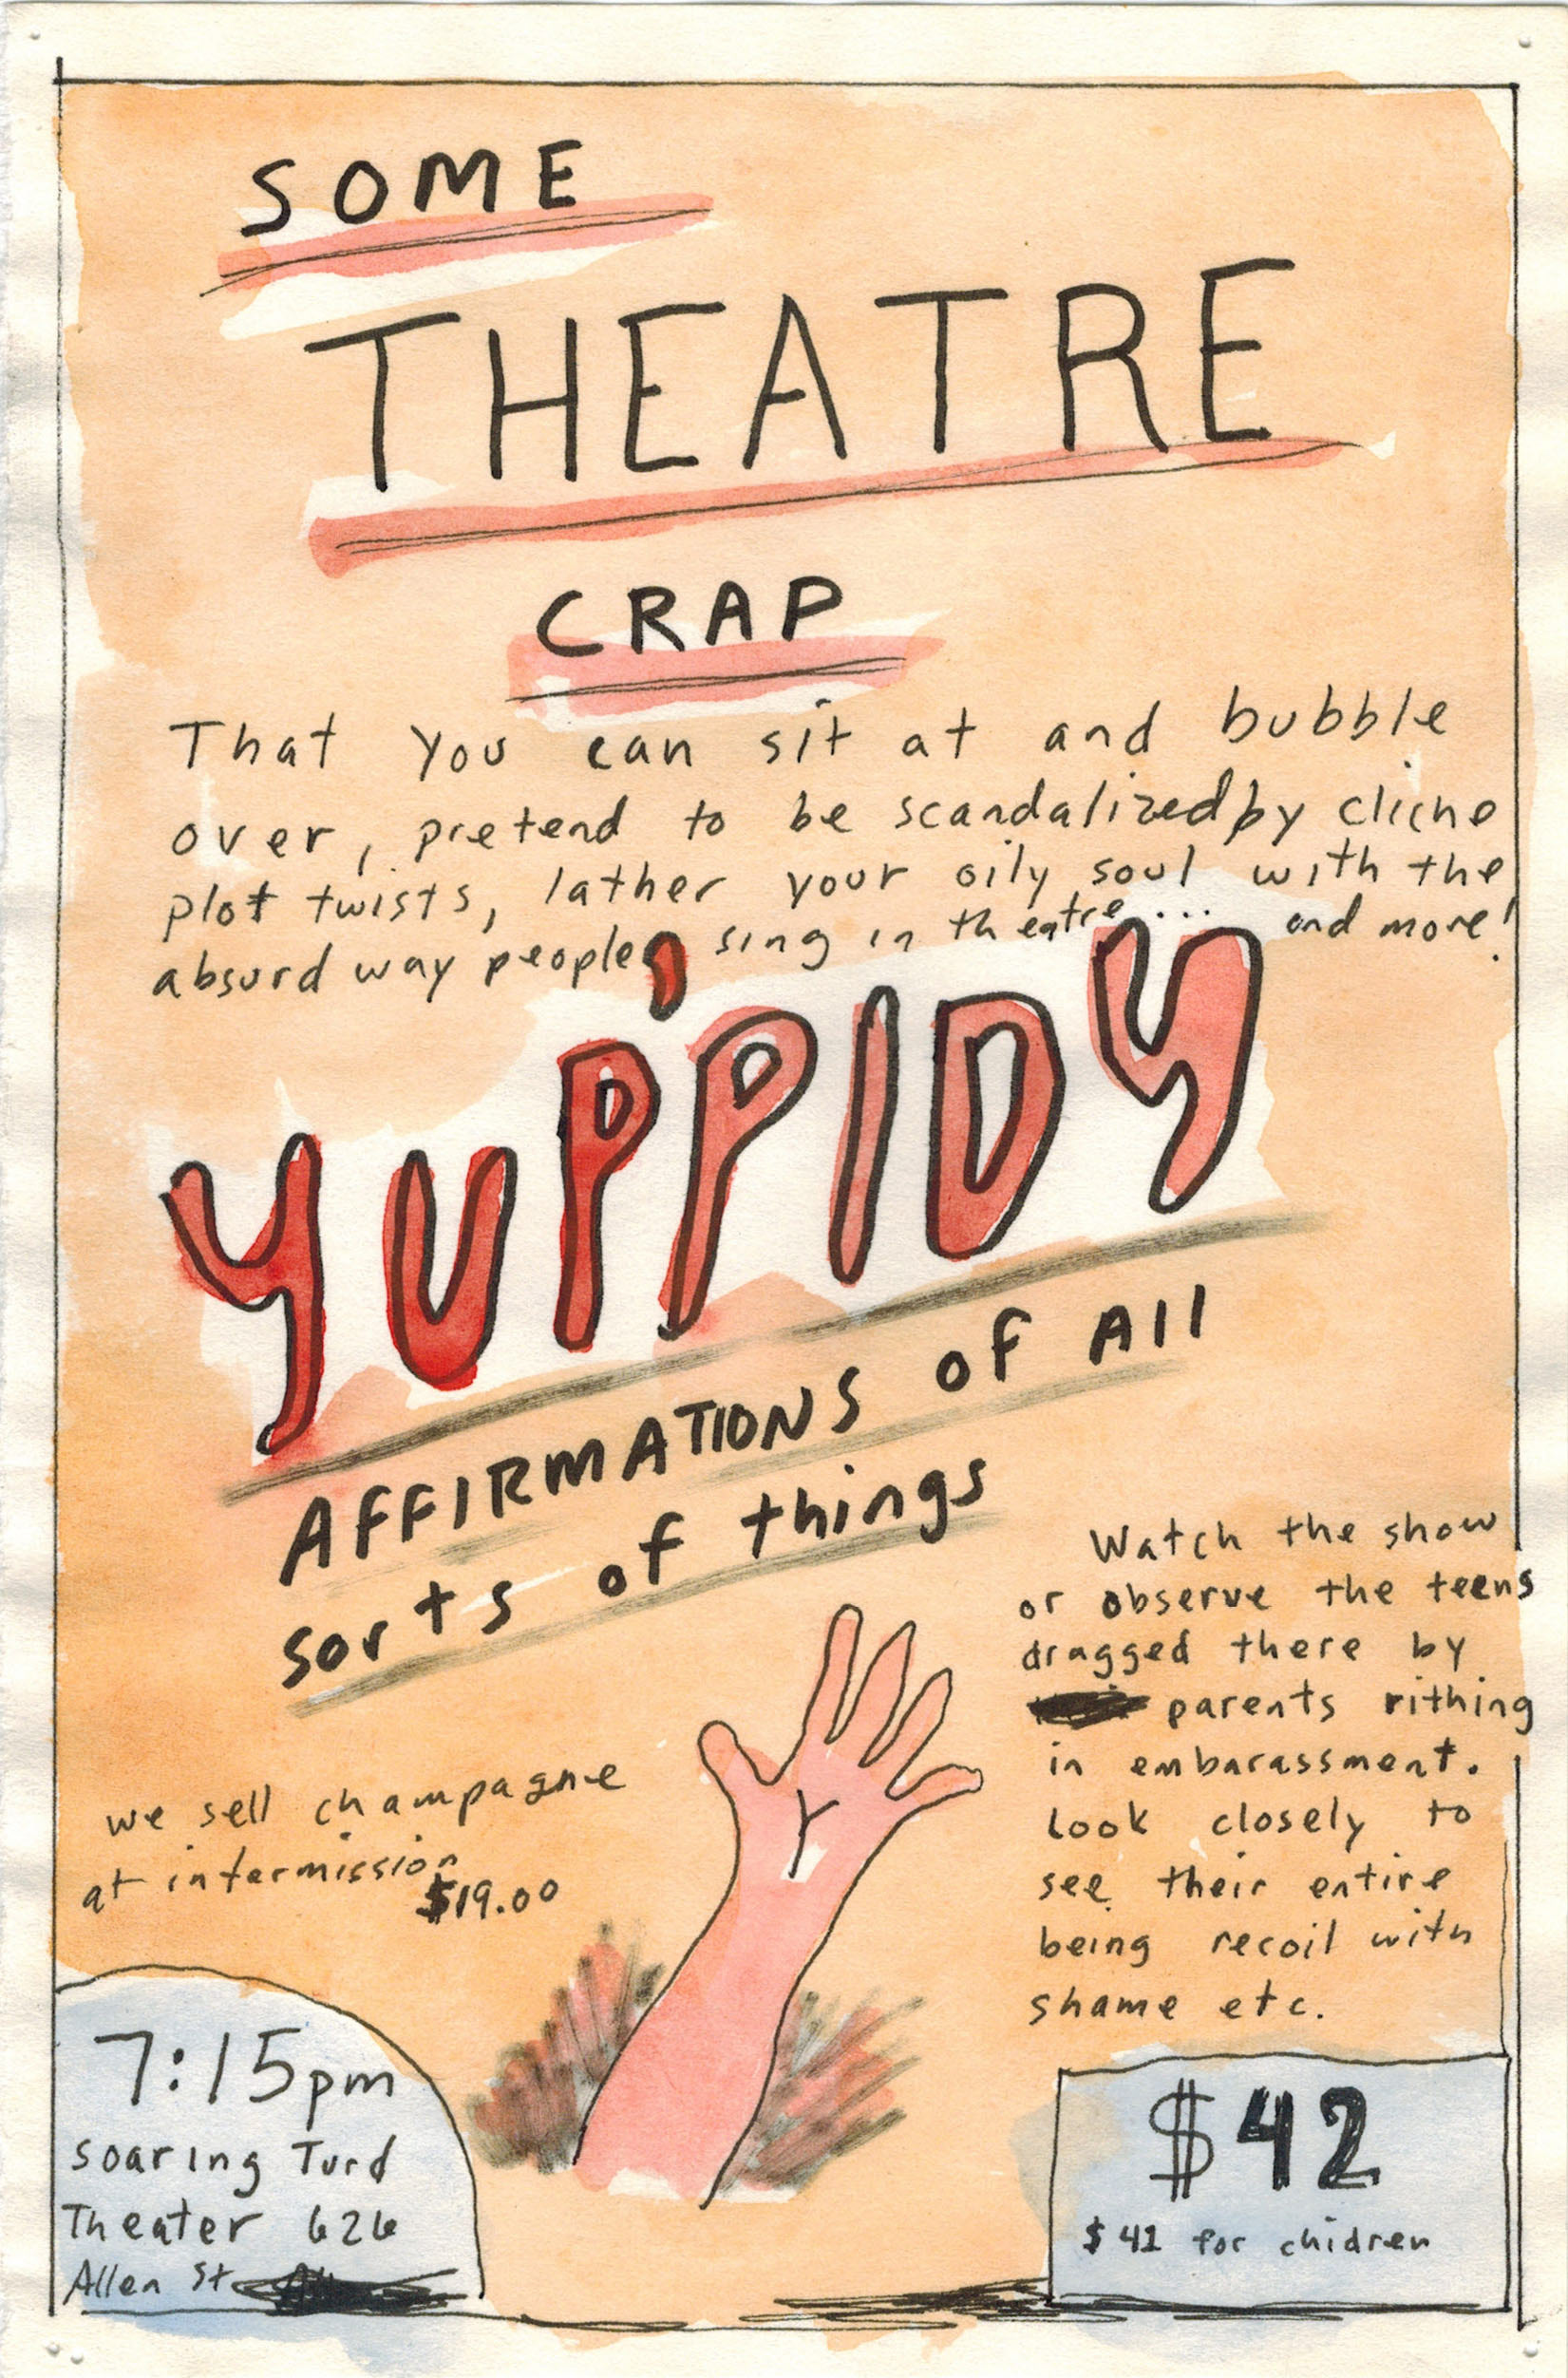 SOME
THEATRE
CRAP
That you can sit at and bubble
over, pretend to be scandalized by cliche
plot twists, lather your oily soul with the
absurd way people sing in theatre... and more!
YUP'PIDY
AFFIRMATIONS of All
sorts of things
Watch the show
or observe the teens
dragged there by
parents rithing
in embarassment.
Look closely to
see their entire
being recoil with
shame etc.
we sell champagne
at intermission
$19.00
7:15pm
Soaring Turd
Theater 626
Allen St
$42
$41 for chidren